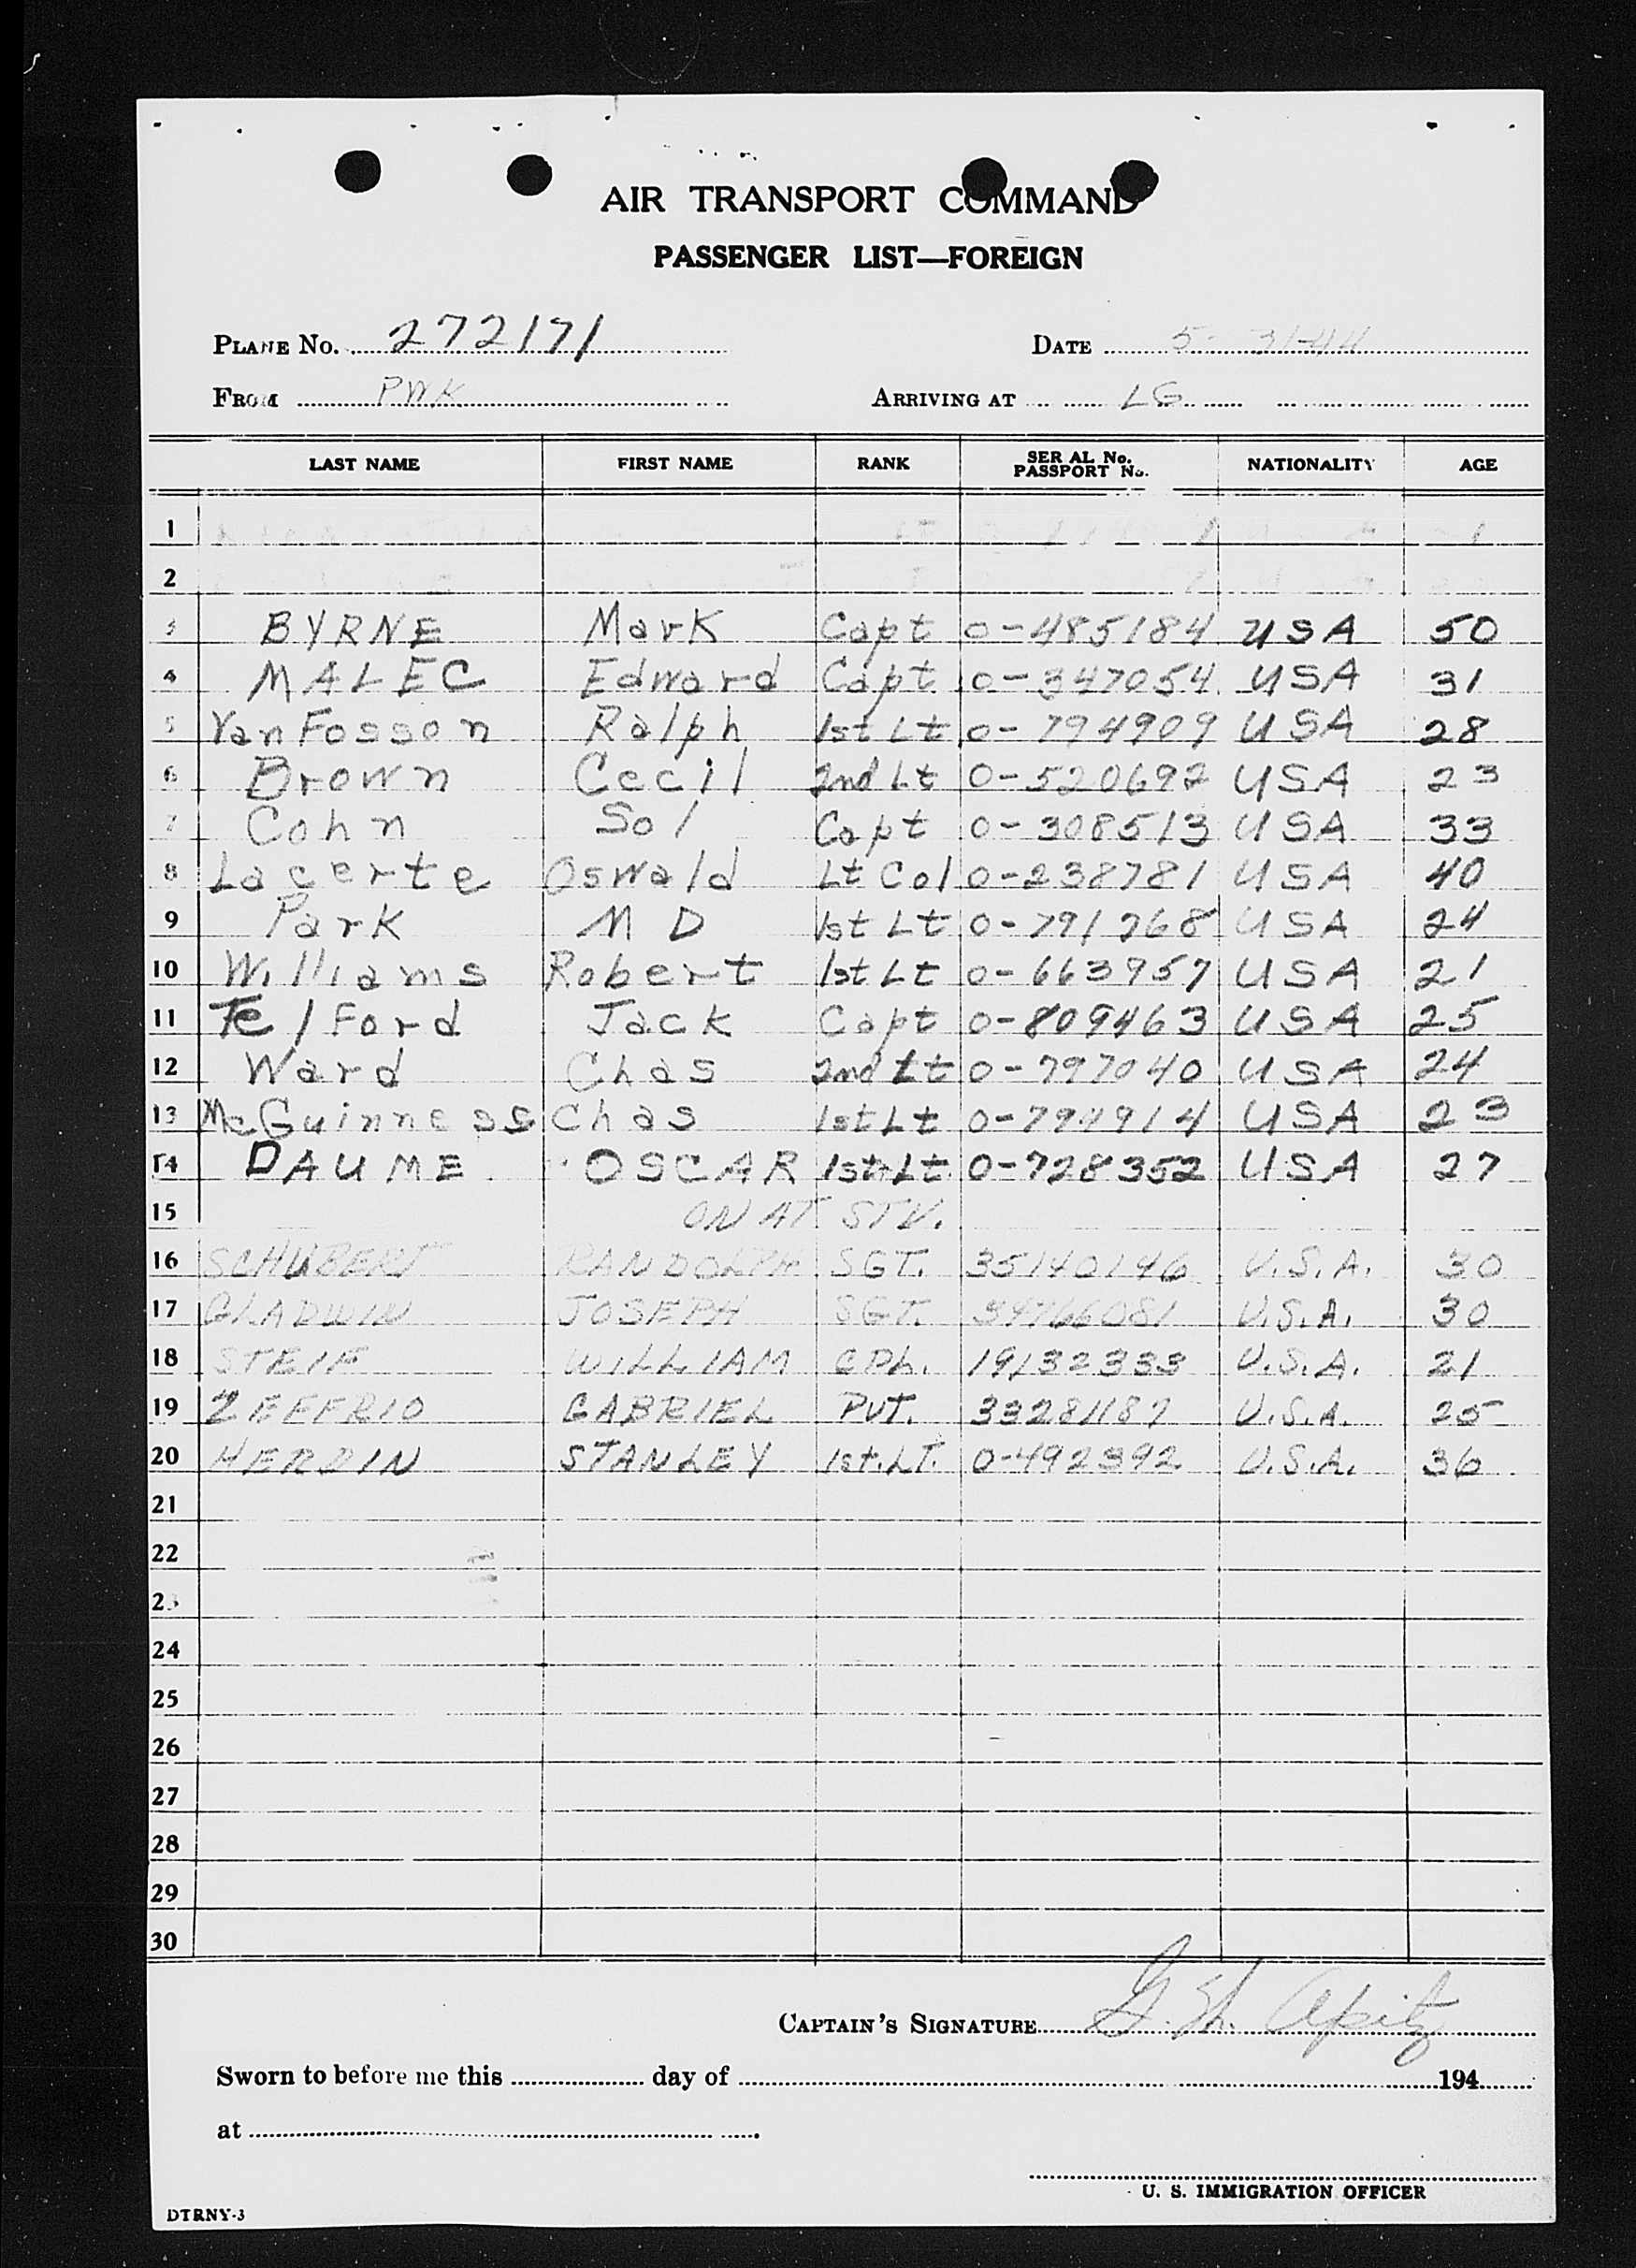 AIR TRANSPORT COMMAND
PASSENGER LIST—FOREIGN
PLANE No. 272171 DATE 5-31-44
FROM PWK ARRIVING AT LG
LAST NAME FIRST NAME RANK SERIAL No. PASSPORT No. NATIONALITY AGE
1
2
3 BYRNE Mark Capt 0-485184 USA 50
4 MALEC Edward Capt 0-347054 USA 31
5 VanFosson Ralph 1st Lt 0-794909 USA 28
6 Brown Cecil 2nd Lt 0-520692 USA 23
7 Cohn Sol Capt 0-308513 USA 33
8 Lacerte Oswald Lt Col 0-238781 USA 40
9 Park M D 1st Lt 0-791768 USA 24
10 Williams Robert 1st Lt 0-663957 USA 21
11 Telford Jack Capt 0-809463 USA 25
12 Ward Chas 2nd Lt 0-797040 USA 24
13 McGuinness Chas 1st Lt 0-794914 USA 23
14 DAUME OSCAR 1st Lt 0-728352 USA 27
15 ON AT STV.
16 SCHUBERT RANDOLPH SGT. 35140146 U.S.A. 30
17 GLADWIN JOSEPH SGT. 34766081 U.S.A. 30
18 STEIF WILLIAM CPL. 19132333 U.S.A. 21
19 ZEFFRIO GABRIEL PVT. 33281187 U.S.A. 25
20 HERDIN STANLEY 1st. LT. 0-492392 U.S.A. 36
21
22
23
24
25
26
27
28
29
30
CAPTAIN'S SIGNATURE Apitz
Sworn to before me this day of 194
at
U. S. IMMIGRATION OFFICER
DTRNY-3